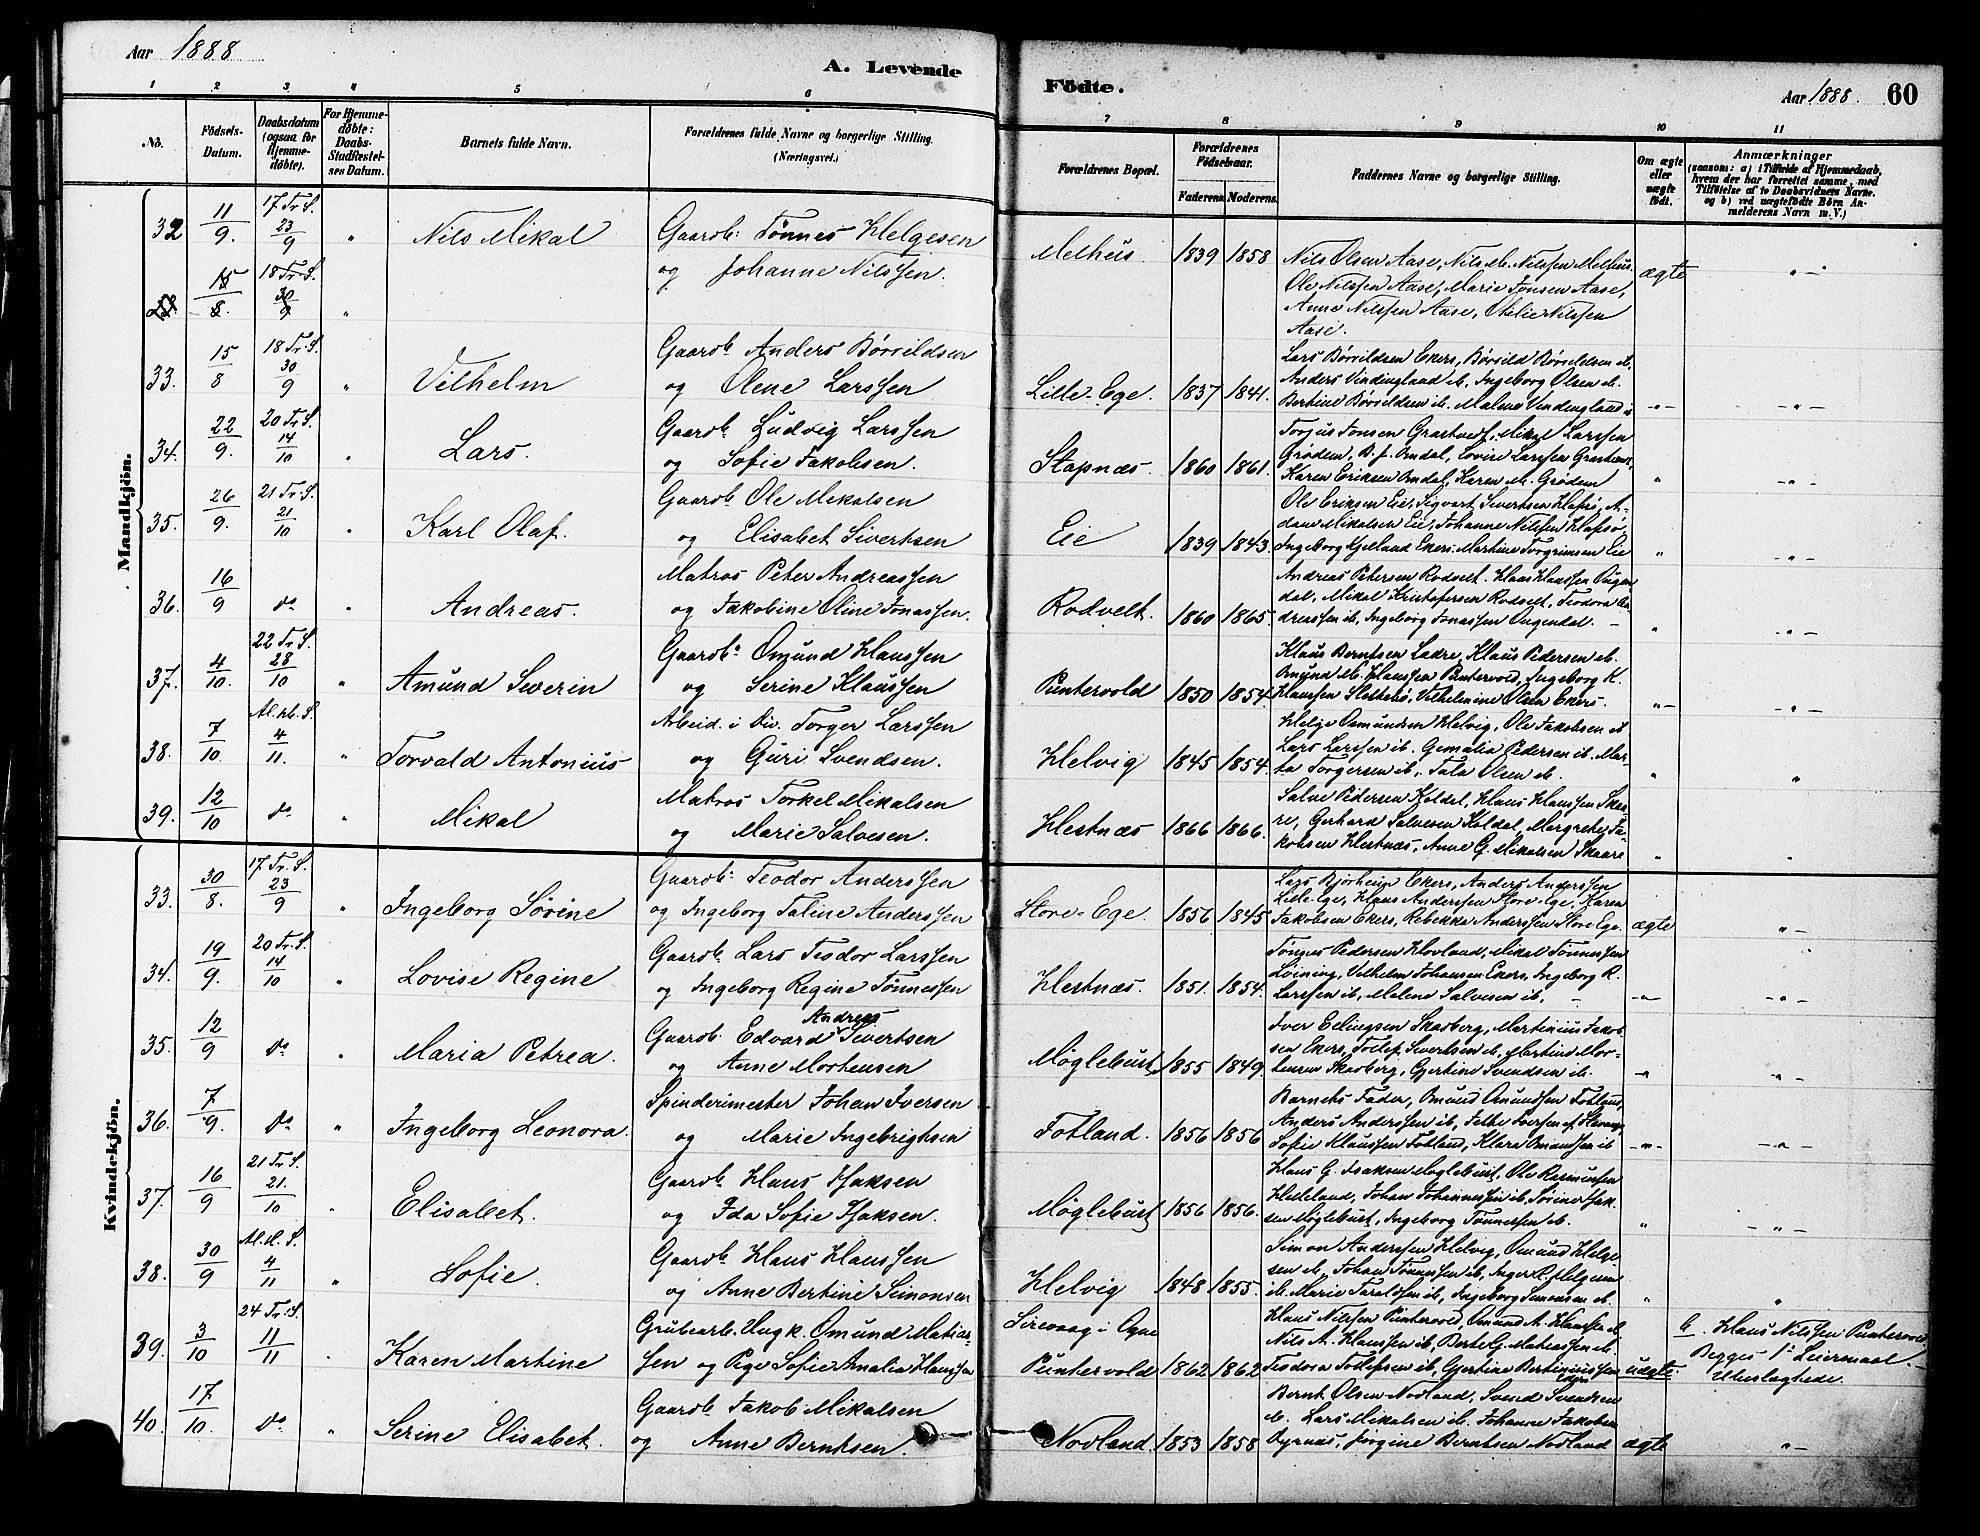 Aar 1888.
A. Levende
Födte.
Aar 1888. 60
1 2 3 4 5 6 7 8 9 10 11
No.
Födsels-
Datum.
Daabsdatum
(ogsaa for
Hjemme-
döbte).
For Hjemme-
döbte:
Daabs-
Stadfæstel-
ses Datum.
Barnets fulde Navn.
Forældrenes fulde Navne og borgerlige Stilling.
(Næringsvei.)
Forældrenes Bopæl.
Forældrenes
Födselsaar.
Faderens. Moderens.
Faddernes Navne og borgerlige Stilling.
Om ægte
eller
uægte
födt.
Anmærkninger
(saasom: a) i Tilfælde af Hjemmedaab,
hvem der har forrettet samme, med
Tilföielse af to Daabsvidners Navne.
og b) ved uægtefödte Börn An-
melderens Navn m.V.)
Mandkjön.
32 11/9. 17 Tr. S. 23/9 " Nils Mikal Gaarb: Tönnes Helgesen
og Johanne Nilssen.
Melhus 1839 1858 Nils Olsen Aase, Nils M. Nilssen Melhus.
Ole Nilssen Aase, Marie Jonsen Aase,
Anne Nilssen Aase, Otelie Nilssen
Aase.
ægte "
15/8. 18 Tr. S. 30/9 "
33. 15/8 18 Tr. S. 30/9 " Vilhelm Gaarb. Anders Börrildsen
og Olene Larssen
Lille-Ege. 1837 1841. Lars Börrildsen Ekers, Börrild Börrildsen ib,
Anders Vindingland ib, Ingeborg Olsen ib.
Bertine Börrildsen ib. Malene Vindingland ib
-"- -"-
34. 22/9. 20 Tr. S. 14/10 " Lars. Gaarb. Ludvig Larssen
og Sofie Jakobsen.
Stapnæs. 1860 1861. Torjus Jonsen Grastveit, Mikal Larssen
Grödem, B. J. Omdal, Lovise Larssen
Karen Eriksen Omdal, Karen M. Grödem
" -"-
35. 26/9. 21 Tr. S. 21/10 " Karl Olaf. Gaarb. Ole Mikalsen
og Elisabet Sivertsen
Eie 1839 1843. Ole Eriksen Eie, Sigvart Sivertsen Hafsö, A-
dam Mikalsen Eie, Johanne Nilssen Hafsö,
Ingeborg Kjelland Ekers. Martine Torgrimsen Eie
" -"-
36. 16/9 do " Andreas. Matros Peter Andreassen
og Jakobine Oline Jonassen.
Rodvelt. 1860 1865. Andreas Petersen Rodvelt. Hans Hanssen Ougen
dal, Mikal Kristofersen Rodvelt, Teodora An-
dreassen ib, Ingeborg Jonassen Ougendal. -
" -"-
37. 4/10. 22 Tr. S. 28/10 " Amund Severin Gaarb. Omund Hanssen
og Serine Klaussen
Puntervold 1850 1854 Klaus Berntsen Ladre, Klaus Pedersen ib.
Omund M. Hanssen Puntervold, Ingeborg K.
Hanssen Slettebö, Vilhelmine Olsen Ekers.
"- -"-
38. 7/10. Al. hl. S. 4/11. " Torvald Antonius Arbeid. i Div. Torger Larssen
og Guri Svendsen.
Helvig 1845 1854. Helge Omundsen Helvig, Ole Jakobsen ib
Lars Larssen ib. Gemalia Pedersen ib. Mar-
ta Torgersen ib, Tala Olsen ib.
" "
39. 12/10 do " Mikal Matros Torkel Mikalsen
og Marie Salvesen.
Hestnæs 1866 1866. Salve Pedersen Koldal, Hans Hanssen Skaa-
re, Gerhard Salvesen Koldal, Margrethe Ja-
kobsen Hestnæs, Anne G. Mikalsen Skaare
" "
Kvindekjön.
33. 30/8. 17 Tr. S. 23/9 " Ingeborg Sörine Gaarb: Teodor Anderssen
og Ingeborg Taline Anderssen
Store-Ege. 1856 1845 Lars Bjorheim Ekers, Anders Anderssen
Lille-Ege, Hans Anderssen Store-Ege, Karen
Jakobsen Ekers, Rebekka Anderssen Store Ege.
ægte "-
34. 19/9. 20 Tr. S. 14/10 " Lovise Regine Gaarb. Lars Teodor Larssen
og Ingeborg Regine Tönnessen
Hestnæs. 1851. 1854. Tönnes Pedersen Hovland, Mikal Tönnessen
Löining, Vilhelm Johansen Ekers, Ingeborg R.
Larssen ib, Malene Salvesen ib, -
-"- -"-
35. 12/9 do " Maria Petrea. Gaarb. Edvard Andreas Sivertsen
og Anne Mortensen
Möglebust 1855 1849. Iver Erlingsen Skarberg, Martinius Jakob-
sen Ekers, Tollef Sivertsen ib, Martine Mor-
tensen Skarberg, Gjertine Svendsen ib.
-"- -"-
36. 7/9. do " Ingeborg Leonora. Spinderimester Johan Iversen
og Marie Ingebrigtsen
Fotland. 1856 1856 Barnets Fader, Omund Omundsen Fotland,
Anders Anderssen ib, Iversen af Stavanger
Sofie Klaussen Fotland, Klara Omundsen ib
-"- -"-
37. 16/9 21 Tr. S. 21./10 " Elisabet. Gaarb. Hans Isaksen
og Ida Sofie Isaksen.
Möglebust 1856 1856. Hans G. Isaksen Möglebust, Ole Rasmussen
Helleland, Johan Johannessen ib, Sörine Isak-
sen Möglebust, Ingeborg Tönnessen ib.
" -"-
38. 30/9 Al. H. S. 4/11 " Sofie. Gaarb. Hans Hanssen
og Anne Bertine Simonsen
Helvig 1848 1855. Simon Anderssen Helvig, Omund Helge-
sen ib, Johan Tönnessen ib, Inger R. Helgesen
ib. Marie Taraldsen ib, Ingeborg Simonsen ib.
" "
39. 3/10 24 Tr. S. 11/11 " Karen Martine Grubearb. Ungk. Omund Matias-
sen og Pige Sofie Amalia Hanssen
Sirevaag i Ogne
Puntervold 1862 1862 Hans Nilssen Puntervold, Omund A. Hanssen ib.
Nils A. Hanssen ib, Berte G. Mathiassen ib.
Teodora Tollefsen ib, Gjertine Bertiniussen
uægte. b. Hans Nilssen Puntervold
Begges 1ste Leiermaal.
Uberlagtede.
40. 17/10. do " Serine Elisabet. Gaarb. Jakob Mikalsen
og Anne Berntsen.
Nodland. 1853 1858 Bernt Olsen Nodland, Svend Svendsen
ib. Lars Mikalsen ib. Johanne Jakobsen
Oyrnæs, Jörgine Berntsen Nodland
ægte "-